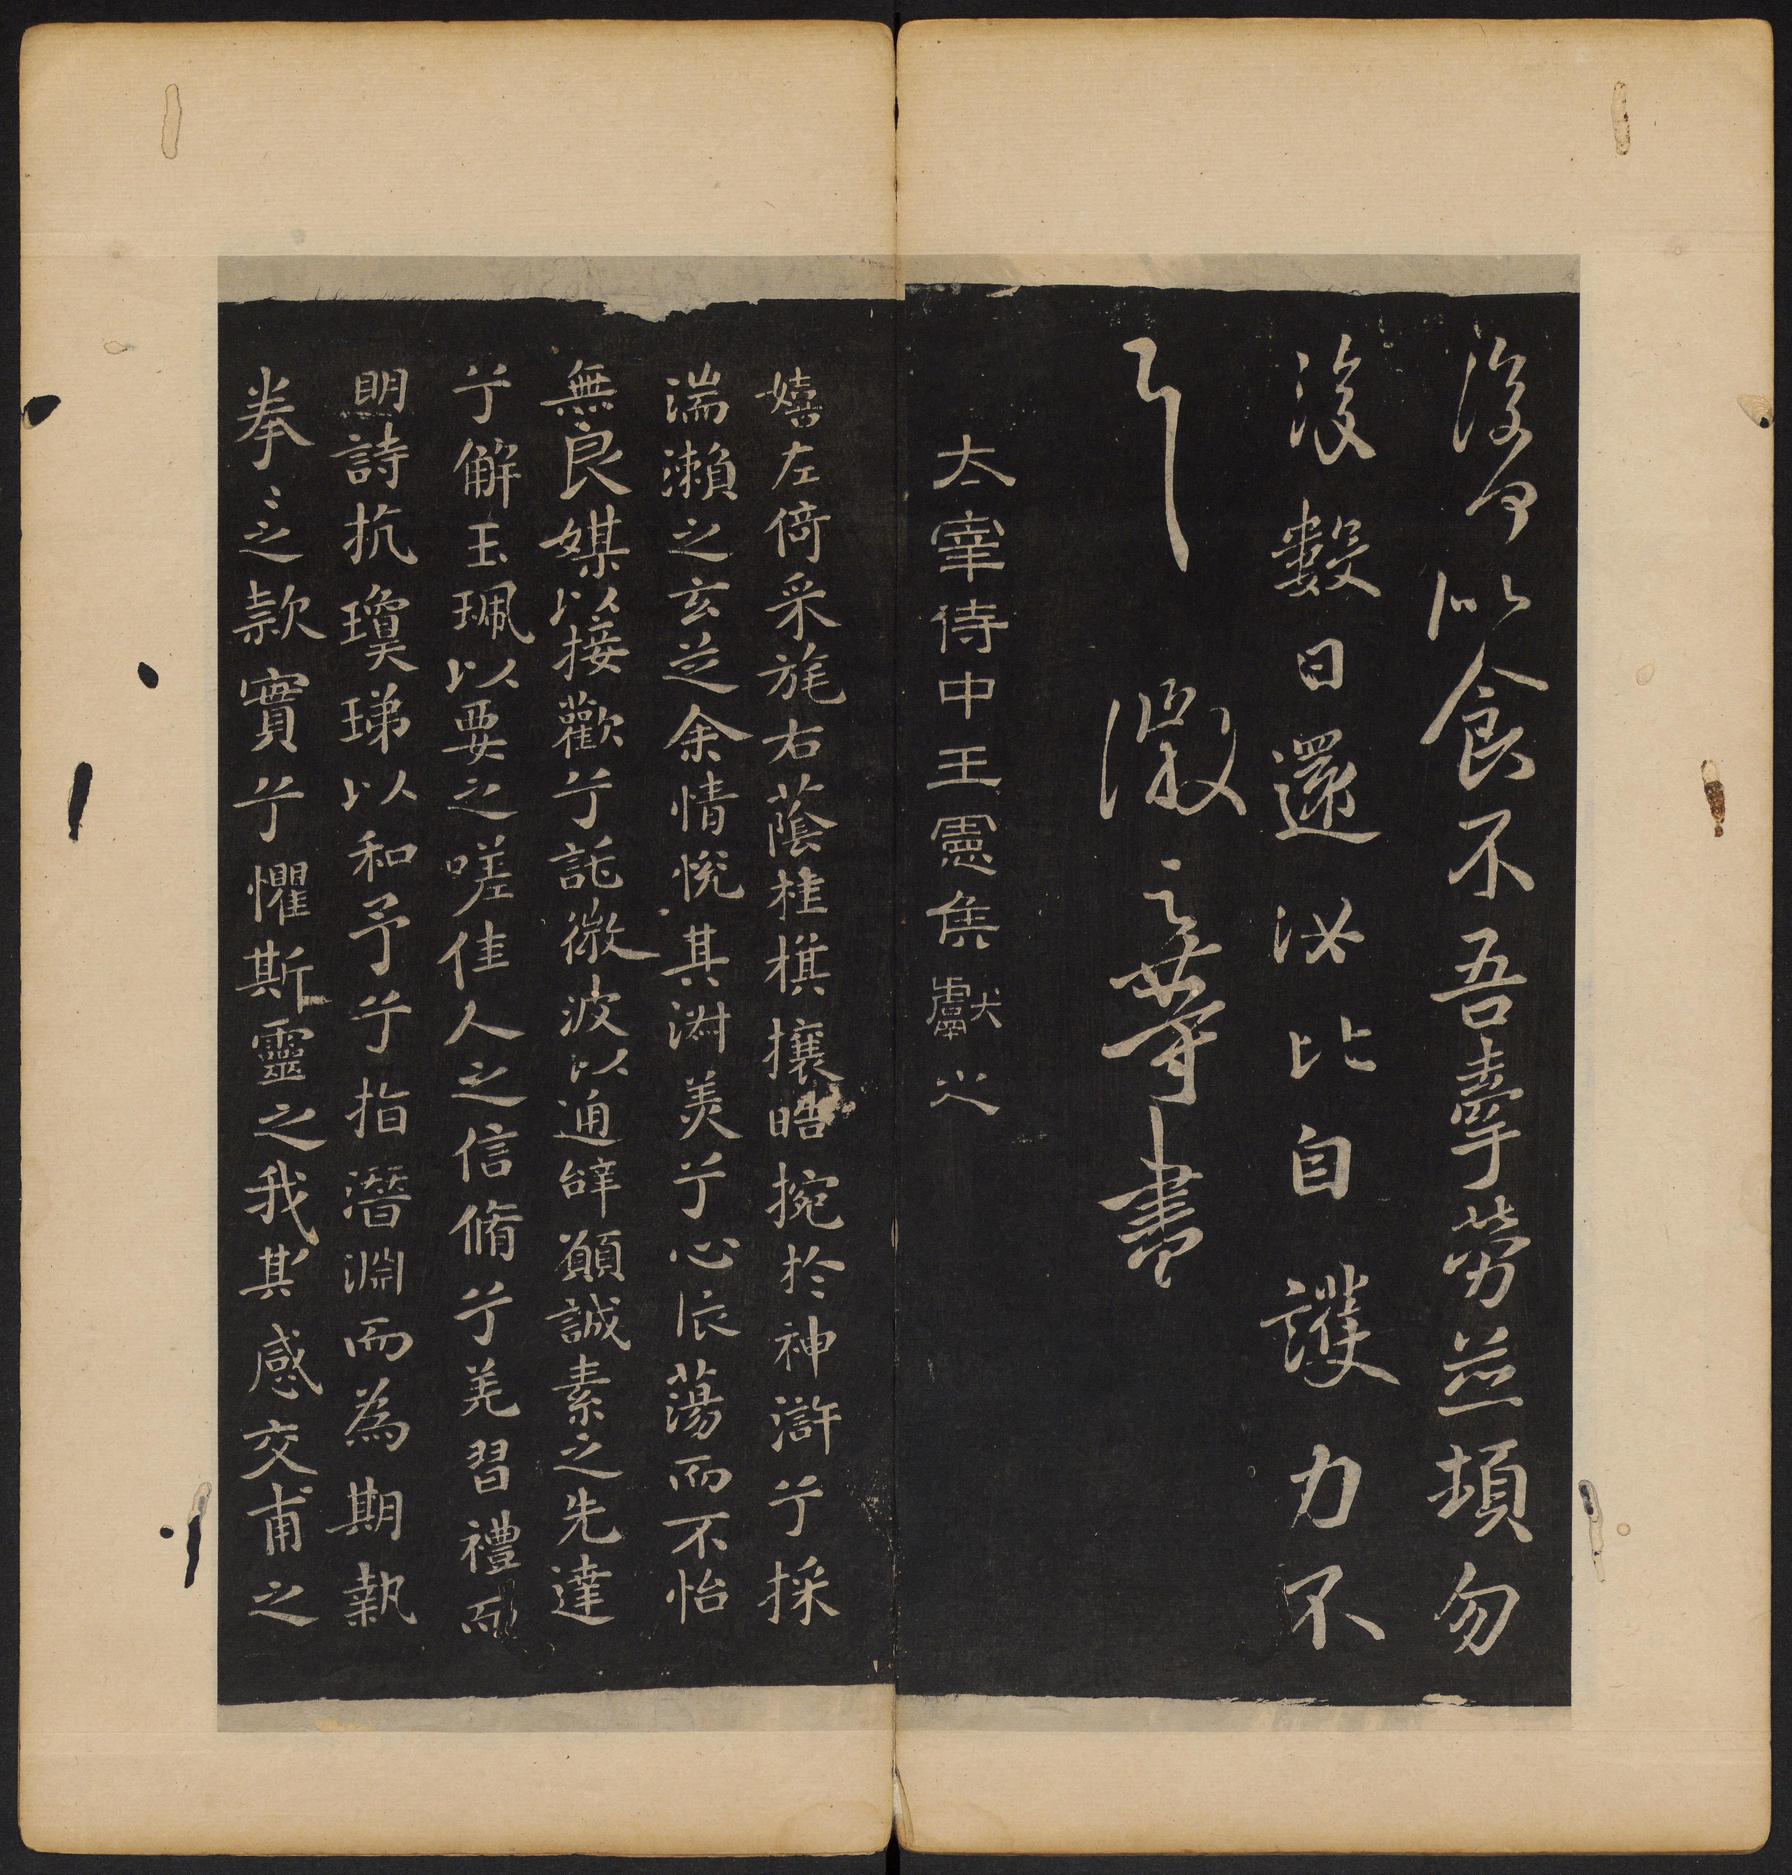 復何以食不吾牽勞並頓勿
復數日還汝比自護力不
徽之等書
太宰侍中王憲侯獻之
嬉左倚采旄右蔭桂旗攘皓捥於神滸兮採
湍瀨之玄芝余情悅其淑美兮心振蕩而不怡
無良媒以接歡兮託微波以通辭願誠素之先達
兮解玉珮以要之嗟佳人之信脩兮羌習禮而
明詩抗瓊珶以和予兮指潛淵而為期執
拳〻之款實兮懼斯靈之我其感交甫之